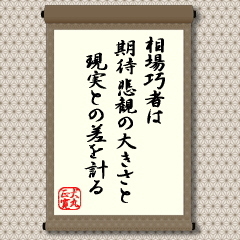 相場巧者は
期待悲観の大きさと
現実との差を計る